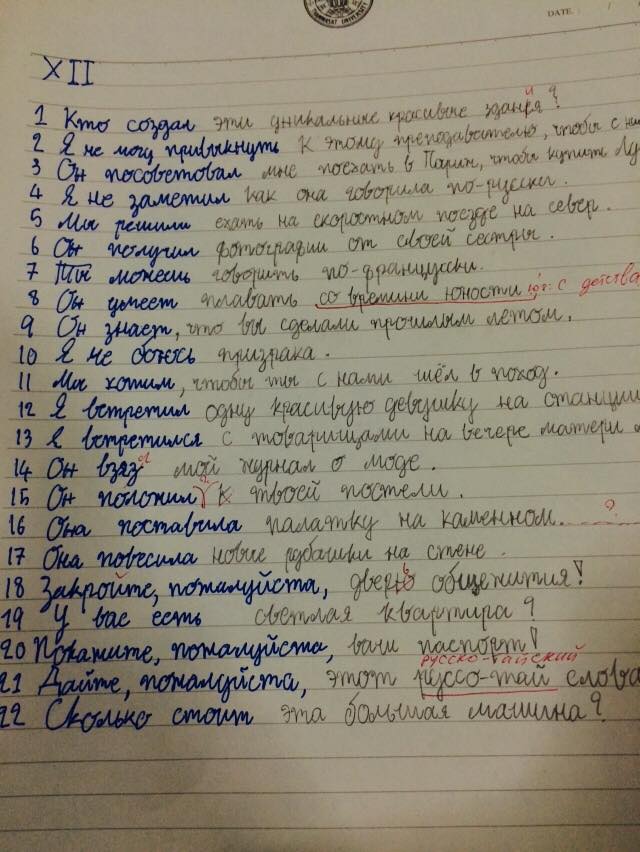 THAMMASAT UNIVERSITY
DATE
XII
1 Кто создал эти уникальние красивые здания?
й
2 Я не могу привыкнуть к этому преподавателю, чтобы с
3 Он посоветовал мне поехать в Париж, чтобы купить
4 Я не заметил как она говорила по-русски.
5 Мы решили ехать на скоростном поезде на север.
6 Он получил фотографии от своей сестры.
7 Ты можешь говорить по-французски.
8 Он умеет плавать со времини юности с детства
9 Он знает, что вы сделали прошлым летом.
10 Я не боюсь призрака.
11 Мы хотим, чтобы ты с нами шёл в поход.
12 Я встретил одну красивую девушку на станции
13 Я встретился с товарищами на вечере матери
14 Он взяз мой журнал о моде.
л
15 Он положил к твоей постели.
16 Она поставила палатку на каменном ?
17 Она повесила новые рубашки на стене.
18 Закройте, пожалуйста, дверь общежития!
19 У вас есть светлая квартира?
20 Покажите, пожалуйста, ваш паспорт!
русско-тайский
21 Дайте, пожалуйста, этот руссо-тай слова
22 Сколько стоит эта большая машина?